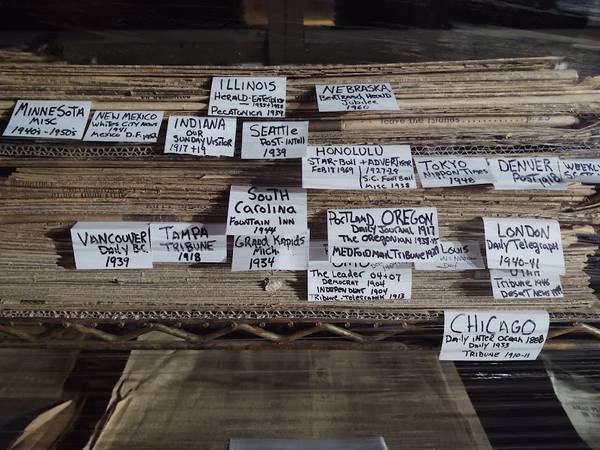 ILLINOIS
HERALD-ENTERPRISE
1933+1938
PECATONICA 1939
NEBRASKA
BERTRAND HERALD
Jubilee
1960
MINNESOTA
MISC
1940's-1950's
NEW MEXICO
WHITES CITY NEWS
1941
MEXICO D.F. 1952
INDIANA
OUR
SUNDAY VISITOR
1917+19
SEATTLE
POST-INTELL
1939
leave the islands
HONOLULU
STAR-BULL + ADVERTISER
FEB 17 1969
1927-29
S.C. FOOTBALL
MISC 1938
TOKYO
NIPPON TIMES
1948
DENVER
POST
WEEKLY
SOUTH
CAROLINA
FOUNTAIN INN
1944
GRAND RAPIDS
MICH.
1934
VANCOUVER
DAILY BC.
1939
TAMPA
TRIBUNE
1918
PORTLAND OREGON
DAILY JOURNAL 1917
THE OREGONIAN 1938-
MEDFORD MAIL TRIBUNE
LOUIS
LONDON
DAILY TELEGRAPH
1940-41
The LEADER 04+07
DEMOCRAT 1904
INDEPENDENT 1904
TRIBUNE-TELEGRAPH 1913
UTAH
TRIBUNE 1946
DESERET NEWS
CHICAGO
DAILY INTER OCEAN 1888
DAILY 1933
TRIBUNE 1910-11